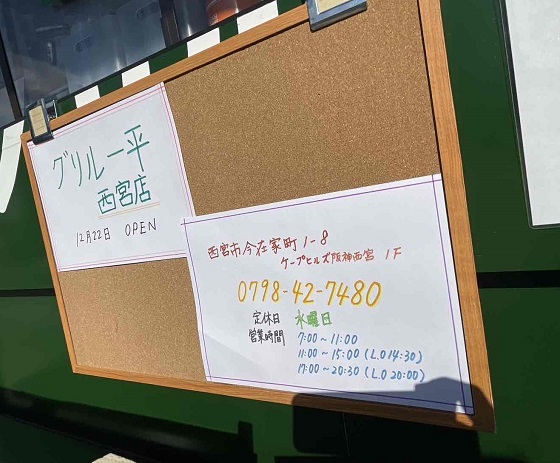 グリル一平
西宮店
12月22日 OPEN
西宮市今在家町1-8
ケープヒルズ阪神西宮 1F
0798-42-7480
定休日 水曜日
営業時間 7:00~11:00
11:00~15:00(L.O 14:30)
17:00~20:30(L.O 20:00)